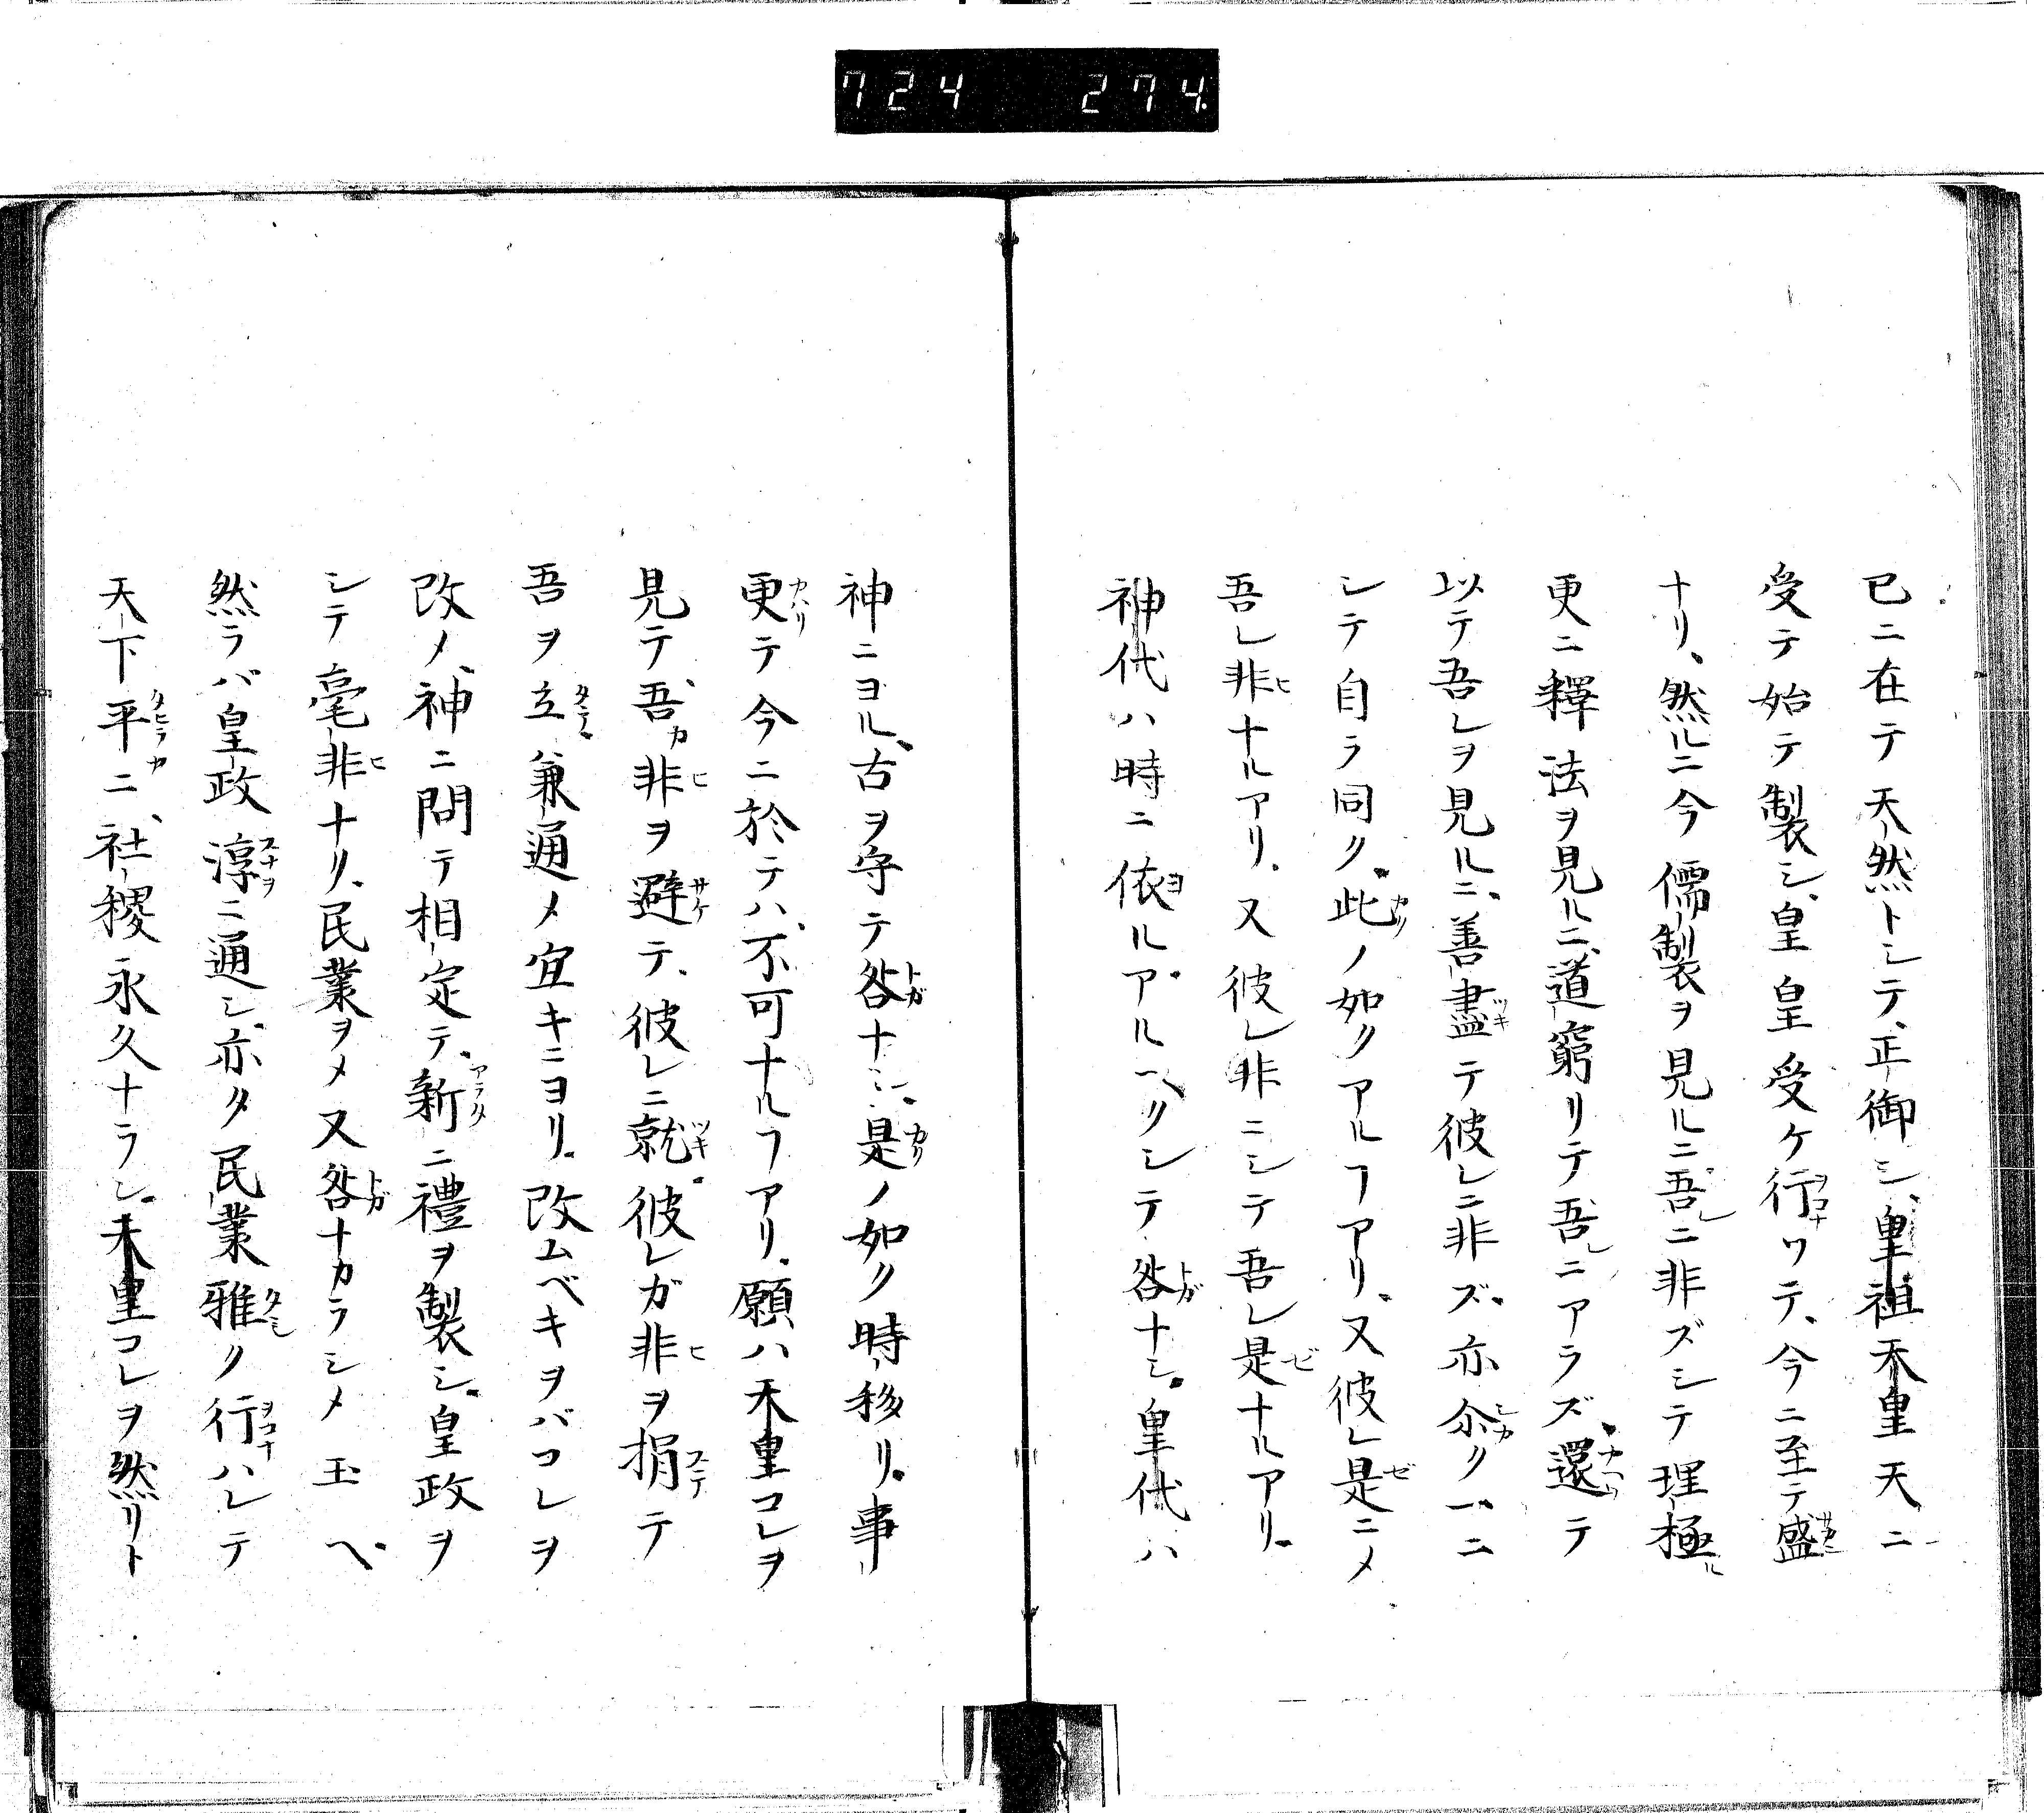 724 274.
已ニ在テ天然トシテ、正御シ、皇祖天皇天ニ
受テ始テ製シ、皇皇受ケ行ワテ、今ニ至テ盛
ナリ、然ルニ今儒製ヲ見ルニ吾レニ非ズシテ理極ル
更ニ釋法ヲ見ルニ、道窮リテ吾レニアラズ、還テ
以テ吾レヲ見ルニ、善盡テ彼レニ非ズ、亦尒ク一ニ
シテ自ラ同ク、此ノ如クアルヿアリ、又彼レ是ニメ
吾レ非ナルアリ、又彼レ非ニシテ吾レ是ナルアリ、
神代ハ時ニ依ルアルヘクシテ咎ナシ、皇代ハ
神ニヨル、古ヲ守テ咎ナシ、是ノ如ク時移リ、事
更テ今ニ於テハ、不可ナルヿアリ、願ハ天皇コレヲ
見テ、吾カ非ヲ避テ、彼レニ就、彼レガ非ヲ捐テ
吾ヲ立、兼通メ宜キニヨリ、改ムベキヲバコレヲ
改メ、神ニ問テ相定テ、新ニ禮ヲ製シ、皇政ヲ
シテ毫非ナリ、民業ヲメ又咎ナカラシメ玉ヘ、
然ラバ皇政淳ニ通シ、亦タ民業雅ク行ハレテ
天下平ニ、社稷永久ナラン、天皇コレヲ然リト